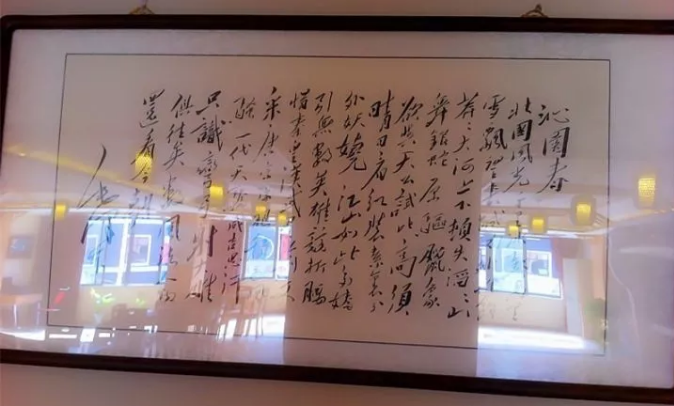 沁園春
北國風光千里
雪飄望長
莽〻大河上下頓失滔〻山
舞銀蛇原驅臘象
欲與天公試比高須
晴日看紅裝素裹分
外妖嬈江山如此多嬌
引無數英雄競折腰
惜秦皇漢武
采唐宗宋祖
騷一代天驕成吉思汗
只識彎弓射大雕
俱往矣數風流人物
還看今朝